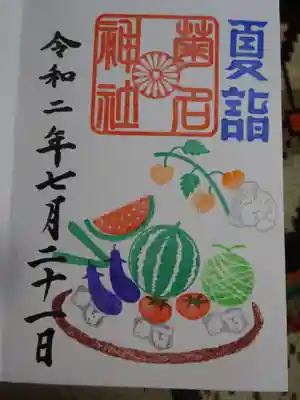 夏詣
菊名
神社
令和二年七月二十一日